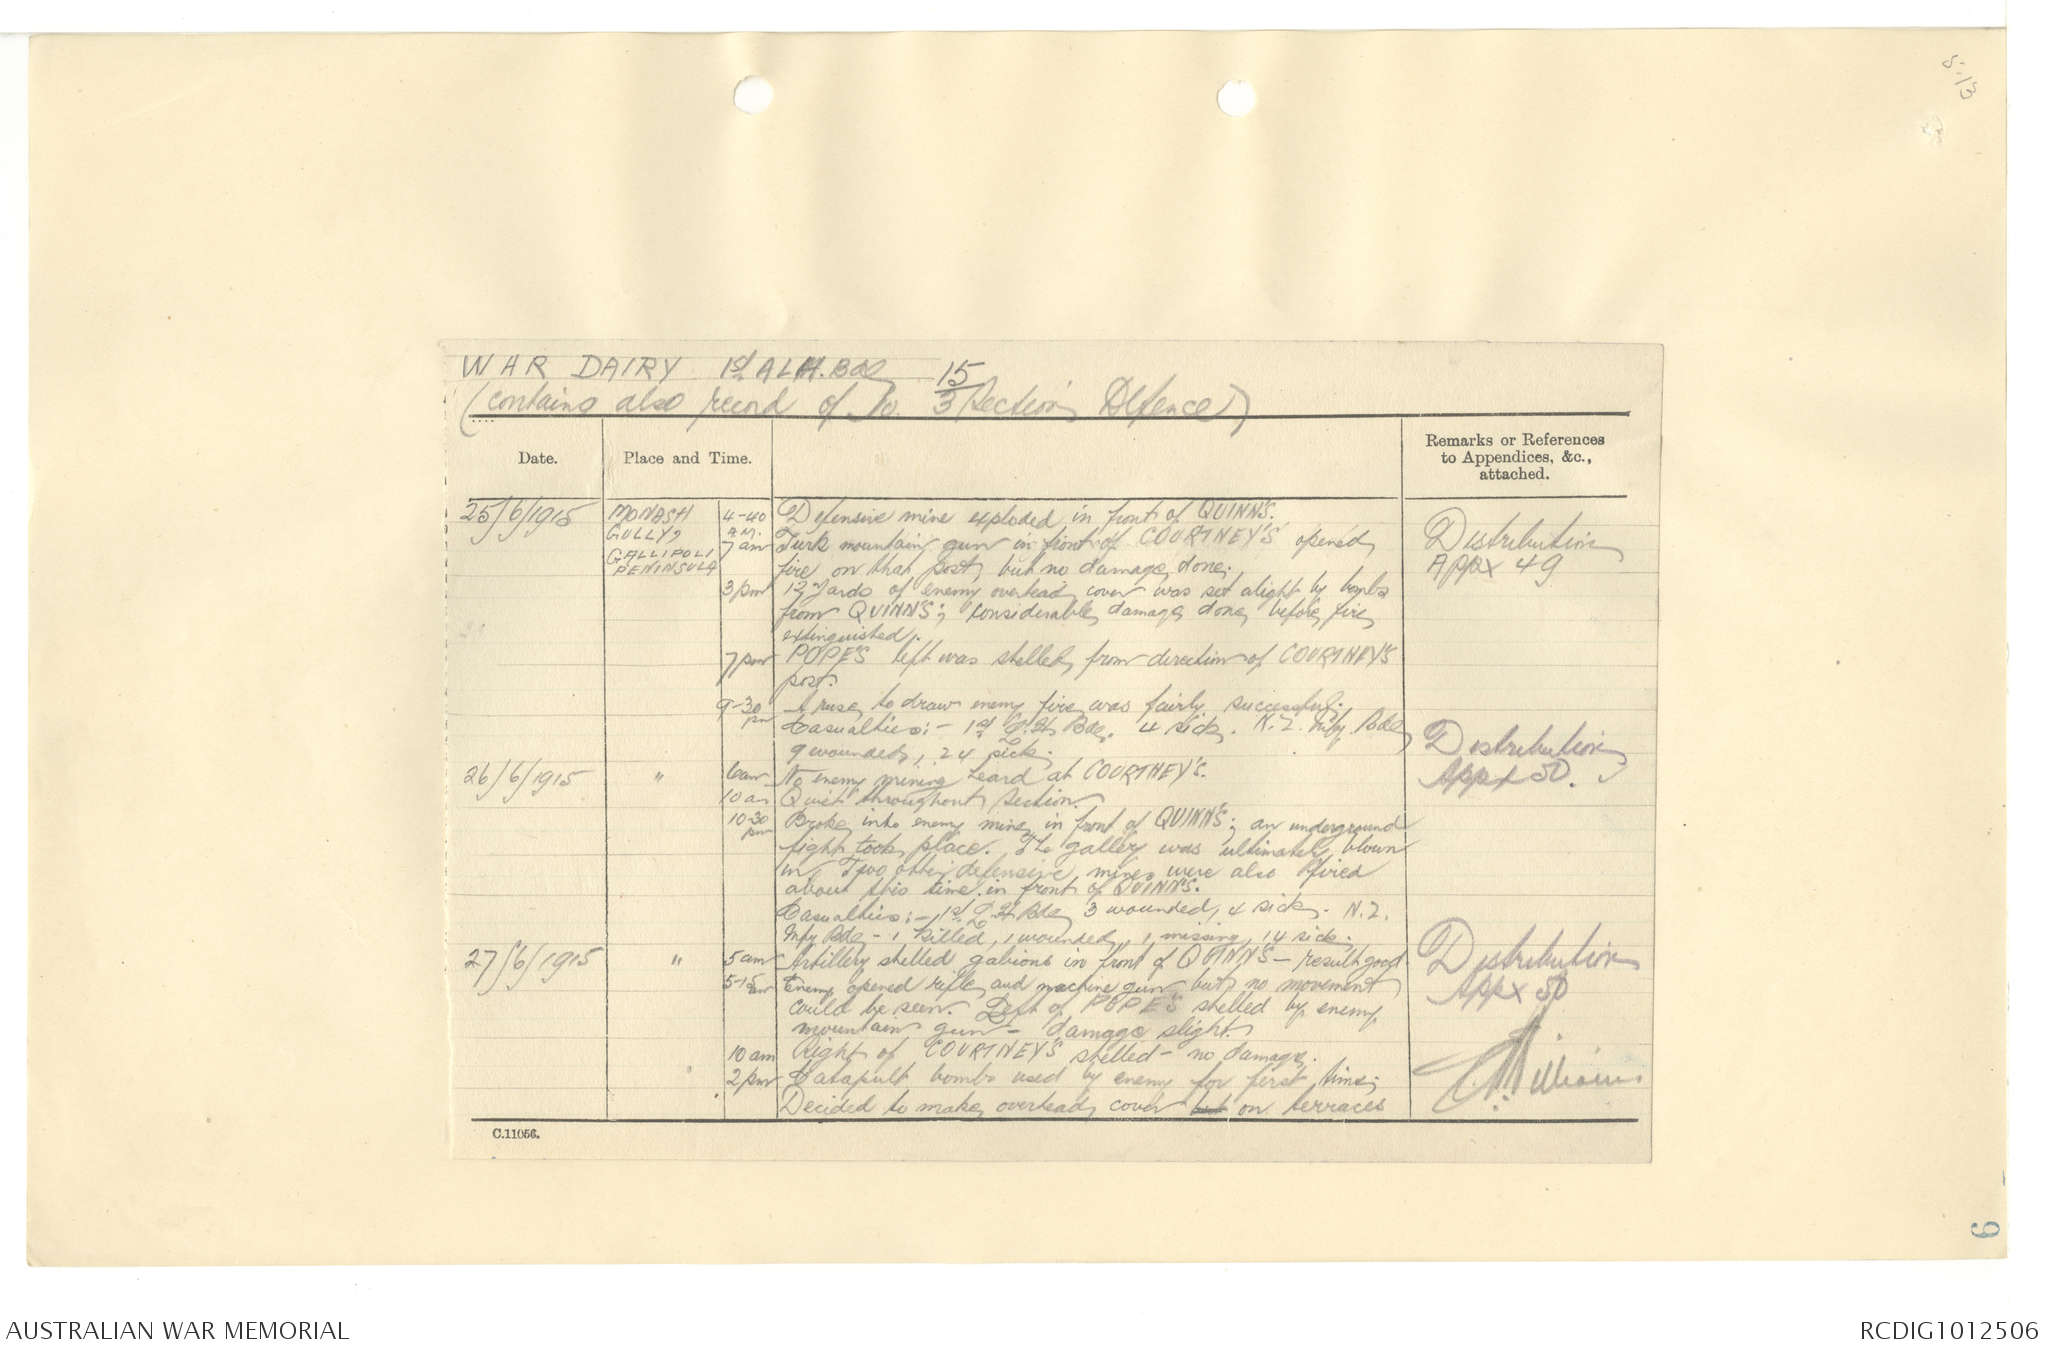 5.13
WAR DAIRY 1st ALH. Bde 15
(contains also record of No. 3 Section Defence)
Date.
Place and Time.
Remarks or References to Appendices, &c., attached.
25/6/1915 MONASH GULLY, GALLIPOLI PENINSULA
4-40 A.M. Defensive mine exploded in front of QUINN'S.
7 am Turk mountain gun in front of COURTNEY'S opened
fire on that post, but no damage done.
Distribution
Appx 49
3 pm 12 Yards of enemy overhead cover was set alight by bombs
from QUINN'S; considerable damage done before fire
extinguished.
7 pm POPE'S left was shelled from direction of COURTNEY'S
post.
9-30 pm A ruse to draw enemy fire was fairly successful.
Casualties:- 1st L.H. Bde. 4 sick. N.Z. Infy. Bde
9 wounded, 24 sick.
Distribution
Appx 50.
26/6/1915 " 6 am No enemy mining heard at COURTNEY'S.
10 am Quiet throughout section.
10-30 pm Broke into enemy mine in front of QUINN'S; an underground
fight took place. The gallery was ultimately blown
in. Two other defensive mines were also fired
about this time in front of QUINN'S.
Casualties:- 1st L.H. Bde 3 wounded, 4 sick. N.Z.
Infy Bde - 1 killed, 1 wounded, 1 missing, 14 sick.
27/6/1915 " 5 am Artillery shelled gabions in front of QUINN'S - result good.
Distribution
Appx 50
5-15 am Enemy opened rifle and machine gun but no movement
could be seen. Left of POPE'S shelled by enemy
mountain gun - damage slight.
10 am Right of COURTNEY'S shelled - no damage.
" 2 pm Catapult bombs used by enemy for first time;
Decided to make overhead cover but on terraces
C.11056.
6
AUSTRALIAN WAR MEMORIAL
RCDIG1012506